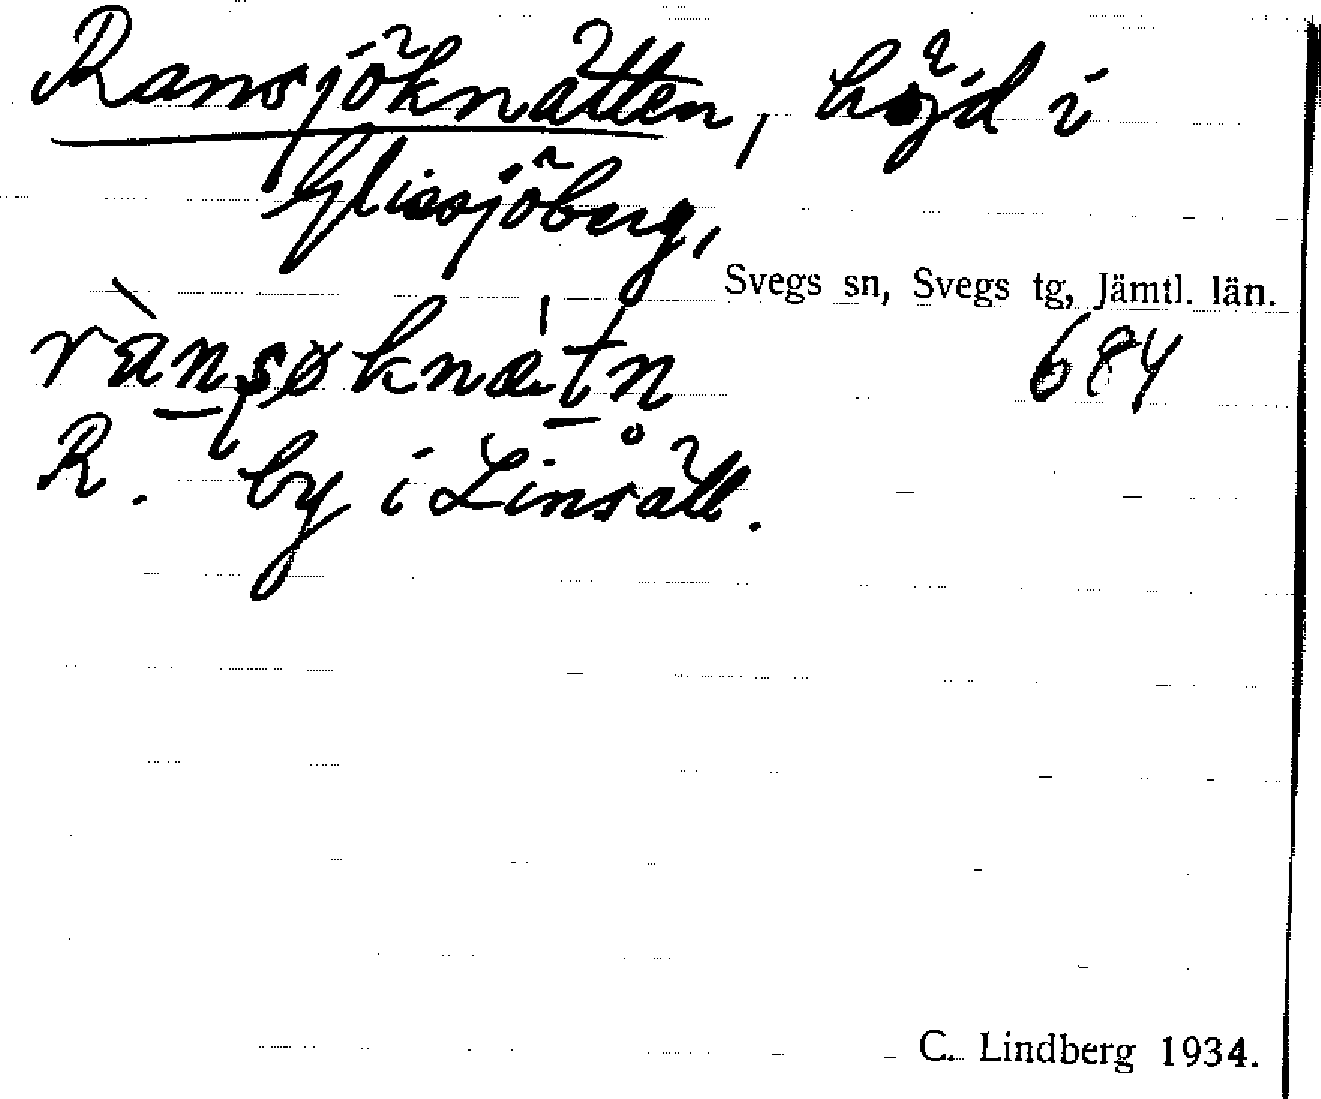 Ransjöknätten, höjd i
Glissjöberg,
Svegs sn, Svegs tg, Jämtl. län.
rànsøknætn 684
R. by i Linsäll.
C. Lindberg 1934.